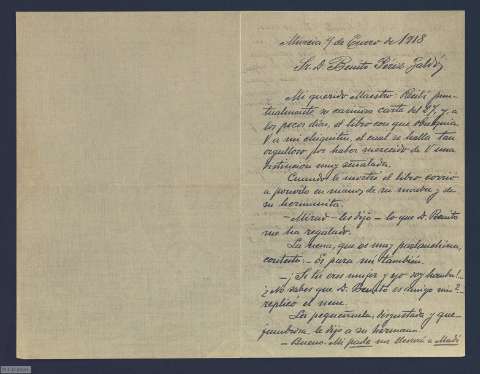 Murcia 7 de Enero de 1918
Sr. D. Benito Pérez Galdós
Mi querido Maestro: Recibí pun-
tualmente su cariñosa carta del 27, y a
los pocos días, el libro con que obsequia
V a mi chiquitin, el cual se halla tan
orgulloso por haber merecido de V una
distincion muy señalada.
Cuando le mostré el libro corrió
a ponerlo en manos de su madre y de
su hermanita.
- Mirad - les dijo - lo que D. Benito
me ha regalado.
La nena, que es muy parlanchina,
contestó: - Es para mi también.
- ¡Si tu eres mujer y yo soy hombre!..
¿No sabes que D. Benito es amigo mio? -
replicó el nene.
La pequeñuela, disgustada y que-
jumbrosa le dijo a su hermano:
- Bueno. Mi me llevará a Madí